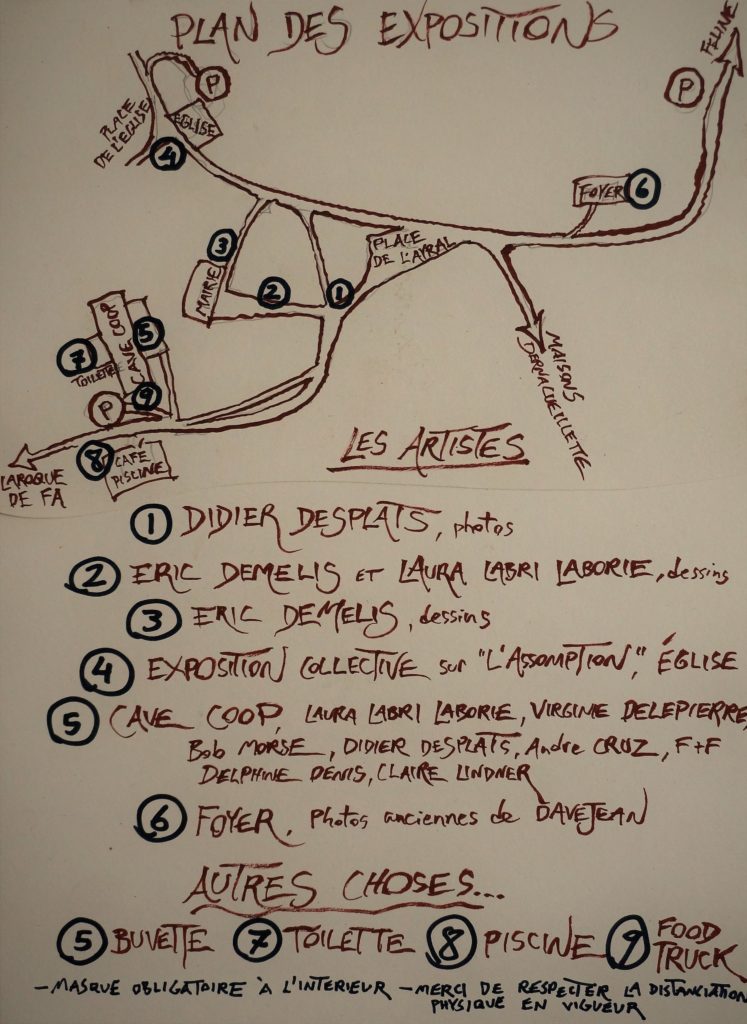 PLAN DES EXPOSITIONS
FELINE
P
P
PLACE
DE L'EGLISE
EGLISE
4
FOYER 6
3
PLACE
DE L'AYRAL
MAIRIE
2
1
CAVE COOP
5
7
TOILETTE
9
P
MAISONS
DERNACUEILLETTE
8
CAFÉ
PISCINE
LAROQUE
DE FA
LES ARTISTES
1 DIDIER DESPLATS, photos
2 ERIC DEMELIS ET LAURA LABRI LABORIE, dessins
3 ERIC DEMELIS, dessins
4 EXPOSITION COLLECTIVE sur "L'ASSOMPTION", ÉGLISE
5 CAVE COOP, LAURA LABRI LABORIE, VIRGINIE DELEPIERRE,
Bob MORSE, DIDIER DESPLATS, Andre CRUZ, F+F
DELPHINE DENIS, CLAIRE LINDNER
6 FOYER, Photos anciennes de DAVEJEAN
AUTRES CHOSES...
5 BUVETTE 7 TOILETTE 8 PISCINE 9 FOOD
TRUCK
- MASQUE OBLIGATOIRE À L'INTERIEUR - MERCI DE RESPECTER LA DISTANCIATION
PHYSIQUE EN VIGUEUR